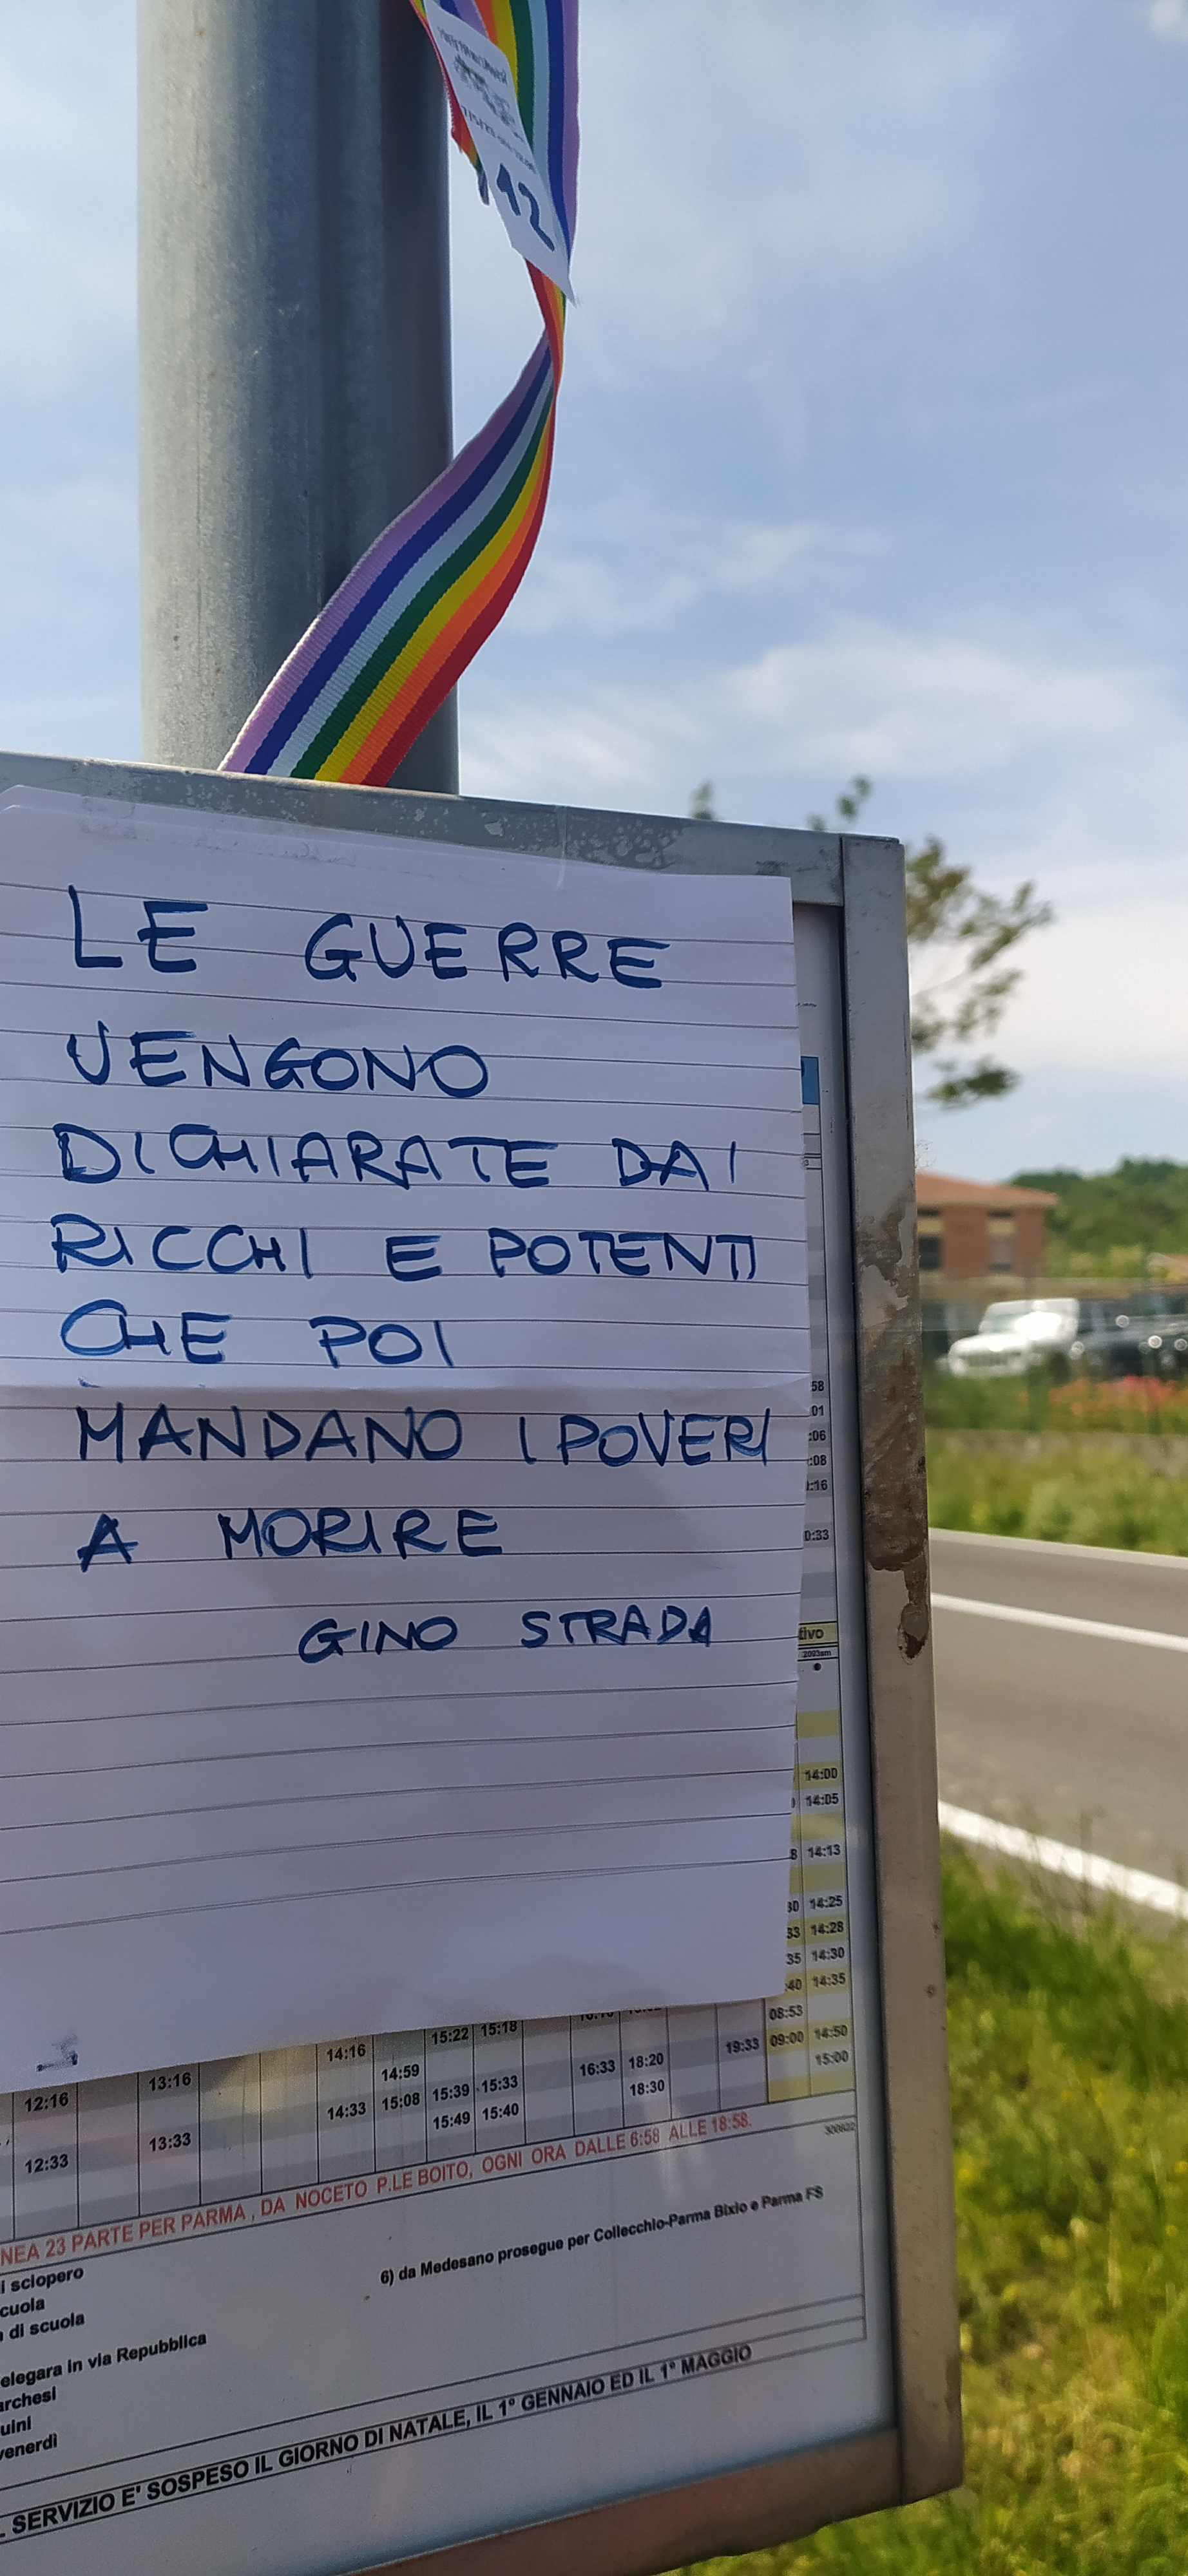 12
LE GUERRE
VENGONO
DICHIARATE DAI
RICCHI E POTENTI
CHE POI
MANDANO I POVERI
A MORIRE
GINO STRADA
58
01
:06
:08
:16
0:33
tivo
14:00
14:05
8 14:13
30 14:25
33 14:28
35 14:30
:40 14:35
15:22 15:18 08:53
14:16 19:33 09:00 14:50
13:16 14:59 16:33 18:20 15:00
12:16 14:33 15:08 15:39 15:33 18:30
13:33 15:49 15:40
12:33
NEA 23 PARTE PER PARMA , DA NOCETO P.LE BOITO, OGNI ORA DALLE 6:58 ALLE 18:58.
300622
i sciopero
6) da Medesano prosegue per Collecchio-Parma Bixio e Parma FS
cuola
di scuola
elegara in via Repubblica
archesi
uini
venerdì
SERVIZIO E' SOSPESO IL GIORNO DI NATALE, IL 1° GENNAIO ED IL 1° MAGGIO